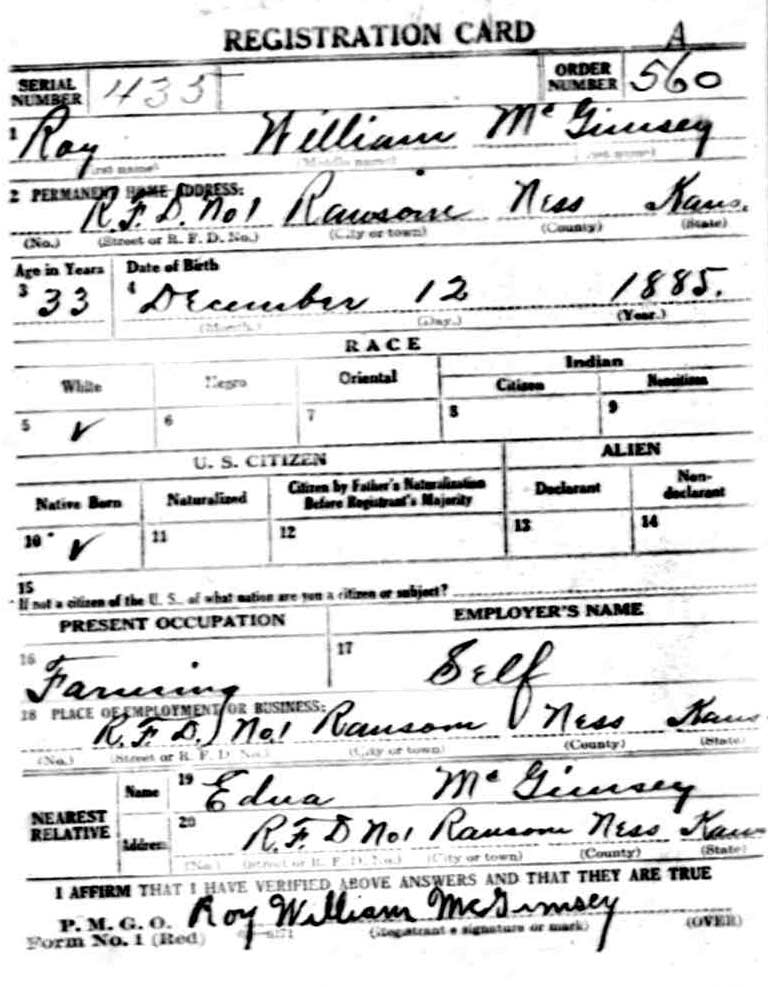 REGISTRATION CARD
A
SERIAL NUMBER 435 ORDER NUMBER 560
1 Roy William McGimsey
(First name) (Middle name) (Last name)
2 PERMANENT HOME ADDRESS:
R.F.D. No1 Rawsom Ness Kans.
(No.) (Street or R. F. D. No.) (City or town) (County) (State)
Age in Years Date of Birth
3 33 4 December 12 1885.
(Month.) (Day.) (Year.)
RACE
White Negro Oriental Indian
Citizen Noncitizen
5 ✓ 6 7 8 9
U. S. CITIZEN ALIEN
Native Born Naturalized Citizen by Father's Naturalization Before Registrant's Majority Declarant Non-declarant
10 ✓ 11 12 13 14
15
If not a citizen of the U. S., of what nation are you a citizen or subject?
PRESENT OCCUPATION EMPLOYER'S NAME
16 Farming 17 Self
18 PLACE OF EMPLOYMENT OR BUSINESS:
R.F.D. No.1 Ransom Ness Kans
(No.) (Street or R. F. D. No.) (City or town) (County) (State)
NEAREST RELATIVE
Name 19 Edna McGimsey
Address 20 R.F.D No1 Ransom Ness Kans
(No.) (Street or R. F. D. No.) (City or town) (County) (State)
I AFFIRM THAT I HAVE VERIFIED ABOVE ANSWERS AND THAT THEY ARE TRUE
P. M. G. O.
Form No. 1 (Red) Roy William McGimsey
(Registrant's signature or mark) (OVER)